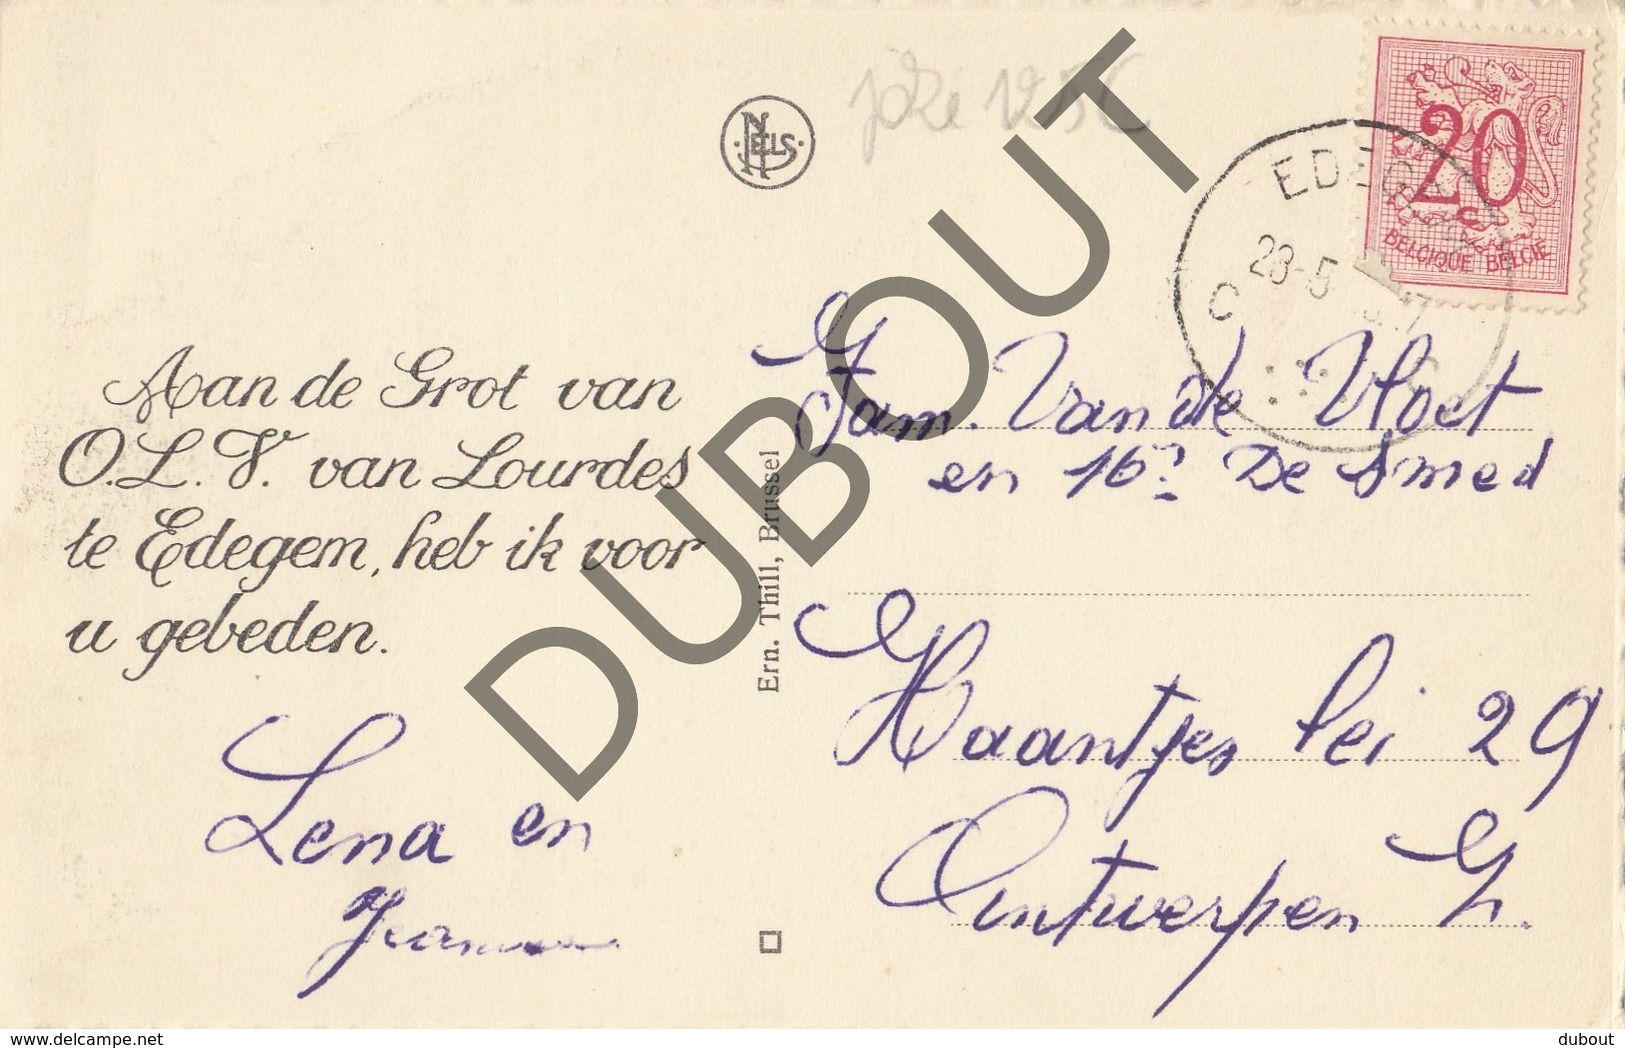 NELS
20
c
BELGIQUE BELGIË
EDEGEM
28-5
C C
Aan de Grot van
O.L.V. van Lourdes
te Edegem, heb ik voor
u gebeden.
Lena en
Ern. Thill, Brussel
Fam. Van de Vloet
en De Smed
Haantjes lei 29
Antwerpen
DUBOUT
www.delcampe.net
dubout